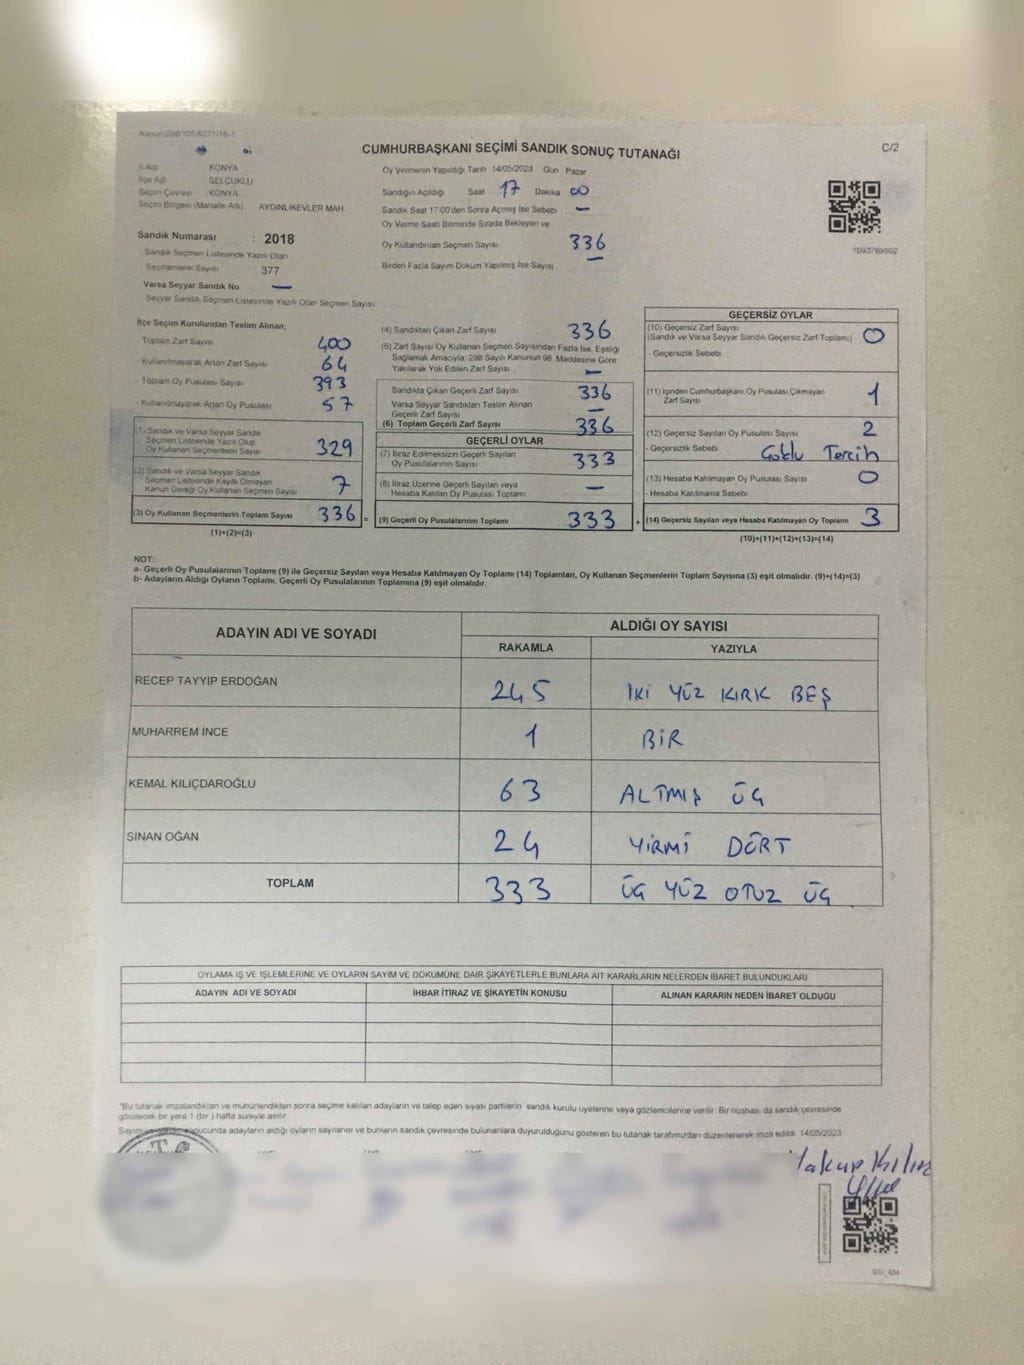 Kanun:298/105,6271/16-1
CUMHURBAŞKANI SEÇİMİ SANDIK SONUÇ TUTANAĞI
C/2
İl Adı : KONYA
İlçe Adı : SELÇUKLU
Seçim Çevresi : KONYA
Seçim Bölgesi (Mahalle Adı) AYDINLIKEVLER MAH.
Sandık Numarası : 2018
Sandık Seçmen Listesinde Yazılı Olan
Seçmenlerin Sayısı 377
Varsa Seyyar Sandık No —
Seyyar Sandık Seçmen Listesinde Yazılı Olan Seçmen Sayısı:
Oy Vermenin Yapıldığı Tarih 14/05/2023 Gün Pazar
Sandığın Açıldığı Saat 17 Dakika 00
Sandık Saat 17:00'den Sonra Açılmış İse Sebebi —
Oy Verme Saati Bitiminde Sırada Bekleyen ve
Oy Kullandırılan Seçmen Sayısı 336
Birden Fazla Sayım Döküm Yapılmış İse Sayısı —
1093769502
İlçe Seçim Kurulundan Teslim Alınan;
Toplam Zarf Sayısı 400
Kullanılmayarak Artan Zarf Sayısı 64
Toplam Oy Pusulası Sayısı 393
- Kullanılmayarak Artan Oy Pusulası 57
(1) Sandık ve Varsa Seyyar Sandık
Seçmen Listesinde Yazılı Olup
Oy Kullanan Seçmenlerin Sayısı 329
(2) Sandık ve Varsa Seyyar Sandık
Seçmen Listesinde Kaydı Olmayan
Kanun Gereği Oy Kullanan Seçmen Sayısı 7
(3) Oy Kullanan Seçmenlerin Toplam Sayısı 336 =
(1)+(2)=(3)
(4) Sandıktan Çıkan Zarf Sayısı 336
(5) Zarf Sayısı Oy Kullanan Seçmen Sayısından Fazla İse, Eşitliği
Sağlamak Amacıyla, 298 Sayılı Kanunun 98. Maddesine Göre
Yakılarak Yok Edilen Zarf Sayısı —
Sandıkta Çıkan Geçerli Zarf Sayısı 336
Varsa Seyyar Sandıktan Teslim Alınan
Geçerli Zarf Sayısı —
(6) Toplam Geçerli Zarf Sayısı 336
GEÇERLİ OYLAR
(7) İtiraz Edilmeksizin Geçerli Sayılan
Oy Pusulalarının Sayısı 333
(8) İtiraz Üzerine Geçerli Sayılan veya
Hesaba Katılan Oy Pusulası Toplamı —
(9) Geçerli Oy Pusulalarının Toplamı 333 +
GEÇERSİZ OYLAR
(10) Geçersiz Zarf Sayısı
(Sandık ve Varsa Seyyar Sandık Geçersiz Zarf Toplamı) 0
- Geçersizlik Sebebi
(11) İçinden Cumhurbaşkanı Oy Pusulası Çıkmayan
Zarf Sayısı 1
(12) Geçersiz Sayılan Oy Pusulası Sayısı 2
- Geçersizlik Sebebi Çoklu Tercih
(13) Hesaba Katılmayan Oy Pusulası Sayısı 0
- Hesaba Katılmama Sebebi
(14) Geçersiz Sayılan veya Hesaba Katılmayan Oy Toplamı 3
(10)+(11)+(12)+(13)=(14)
NOT:
a- Geçerli Oy Pusulalarının Toplamı (9) ile Geçersiz Sayılan veya Hesaba Katılmayan Oy Toplamı (14) Toplamları, Oy Kullanan Seçmenlerin Toplam Sayısına (3) eşit olmalıdır. (9)+(14)=(3)
b- Adayların Aldığı Oyların Toplamı, Geçerli Oy Pusulalarının Toplamına (9) eşit olmalıdır.
ADAYIN ADI VE SOYADI ALDIĞI OY SAYISI
RAKAMLA YAZIYLA
RECEP TAYYİP ERDOĞAN 245 İKİ YÜZ KIRK BEŞ
MUHARREM İNCE 1 BİR
KEMAL KILIÇDAROĞLU 63 ALTMIŞ ÜÇ
SİNAN OĞAN 24 YİRMİ DÖRT
TOPLAM 333 ÜÇ YÜZ OTUZ ÜÇ
OYLAMA İŞ VE İŞLEMLERİNE VE OYLARIN SAYIM VE DÖKÜMÜNE DAİR ŞİKAYETLERLE BUNLARA AİT KARARLARIN NELERDEN İBARET BULUNDUKLARI
ADAYIN ADI VE SOYADI İHBAR İTİRAZ VE ŞİKAYETİN KONUSU ALINAN KARARIN NEDEN İBARET OLDUĞU
"Bu tutanak imzalandıktan ve mühürlendikten sonra seçime katılan adayların ve talep eden siyasi partilerin sandık kurulu üyelerine veya gözlemcilerine verilir. Bir nüshası da sandık çevresinde
görülecek bir yere 1 (bir ) hafta süreyle asılır.
Sayım ve sonucunda adayların aldığı oyların sayılarını ve bunların sandık çevresinde bulunanlara duyurulduğunu gösteren bu tutanak tarafımızdan düzenlenerek imza edildi. 14/05/2023
T.C.
Yakup Kılınç